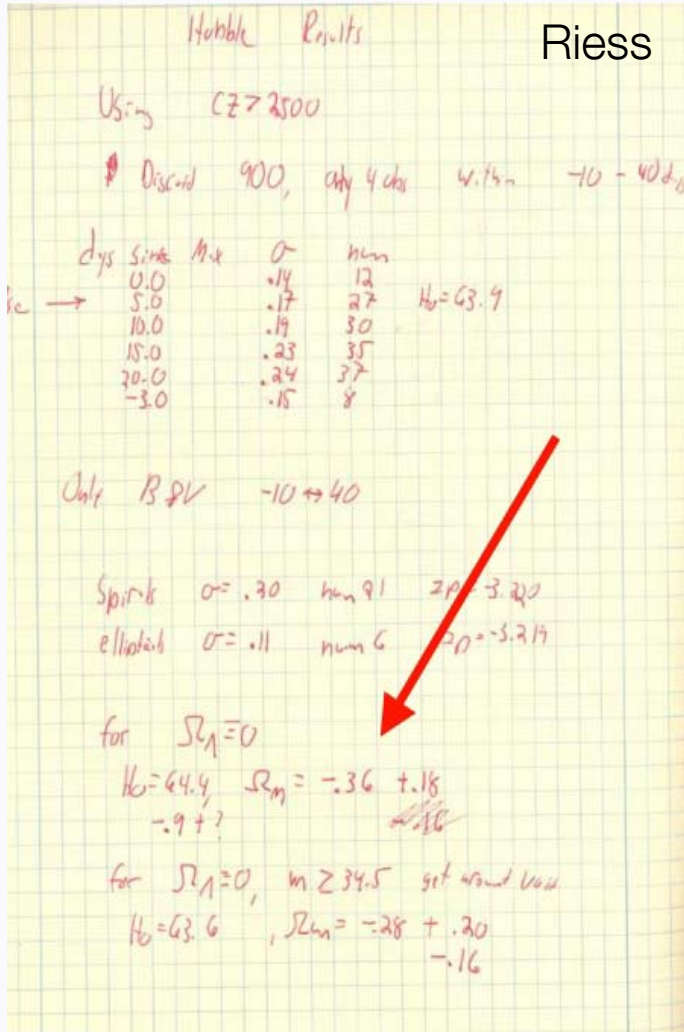 Hubble Results
Riess
Using CZ > 2500
Discard 900, only 4 obs within -10 - 40 dys
dys since Max σ num
0.0 .14 12
→ 5.0 .17 27 H₀=63.9
10.0 .19 30
15.0 .23 35
20.0 .24 37
-3.0 .15 8
Only B & V -10 ↔ 40
Spirals σ= .20 num 21 zp = -3.220
ellipticals σ= .11 num 6 zp = -3.219
for Ω_Λ ≡ 0
H₀=64.4, Ω_m = -.36 +.18
-.9 + ?
for Ω_Λ ≡ 0, m ≥ 34.5 get around
H₀=63.6 , Ω_m = -.28 + .20
-.16